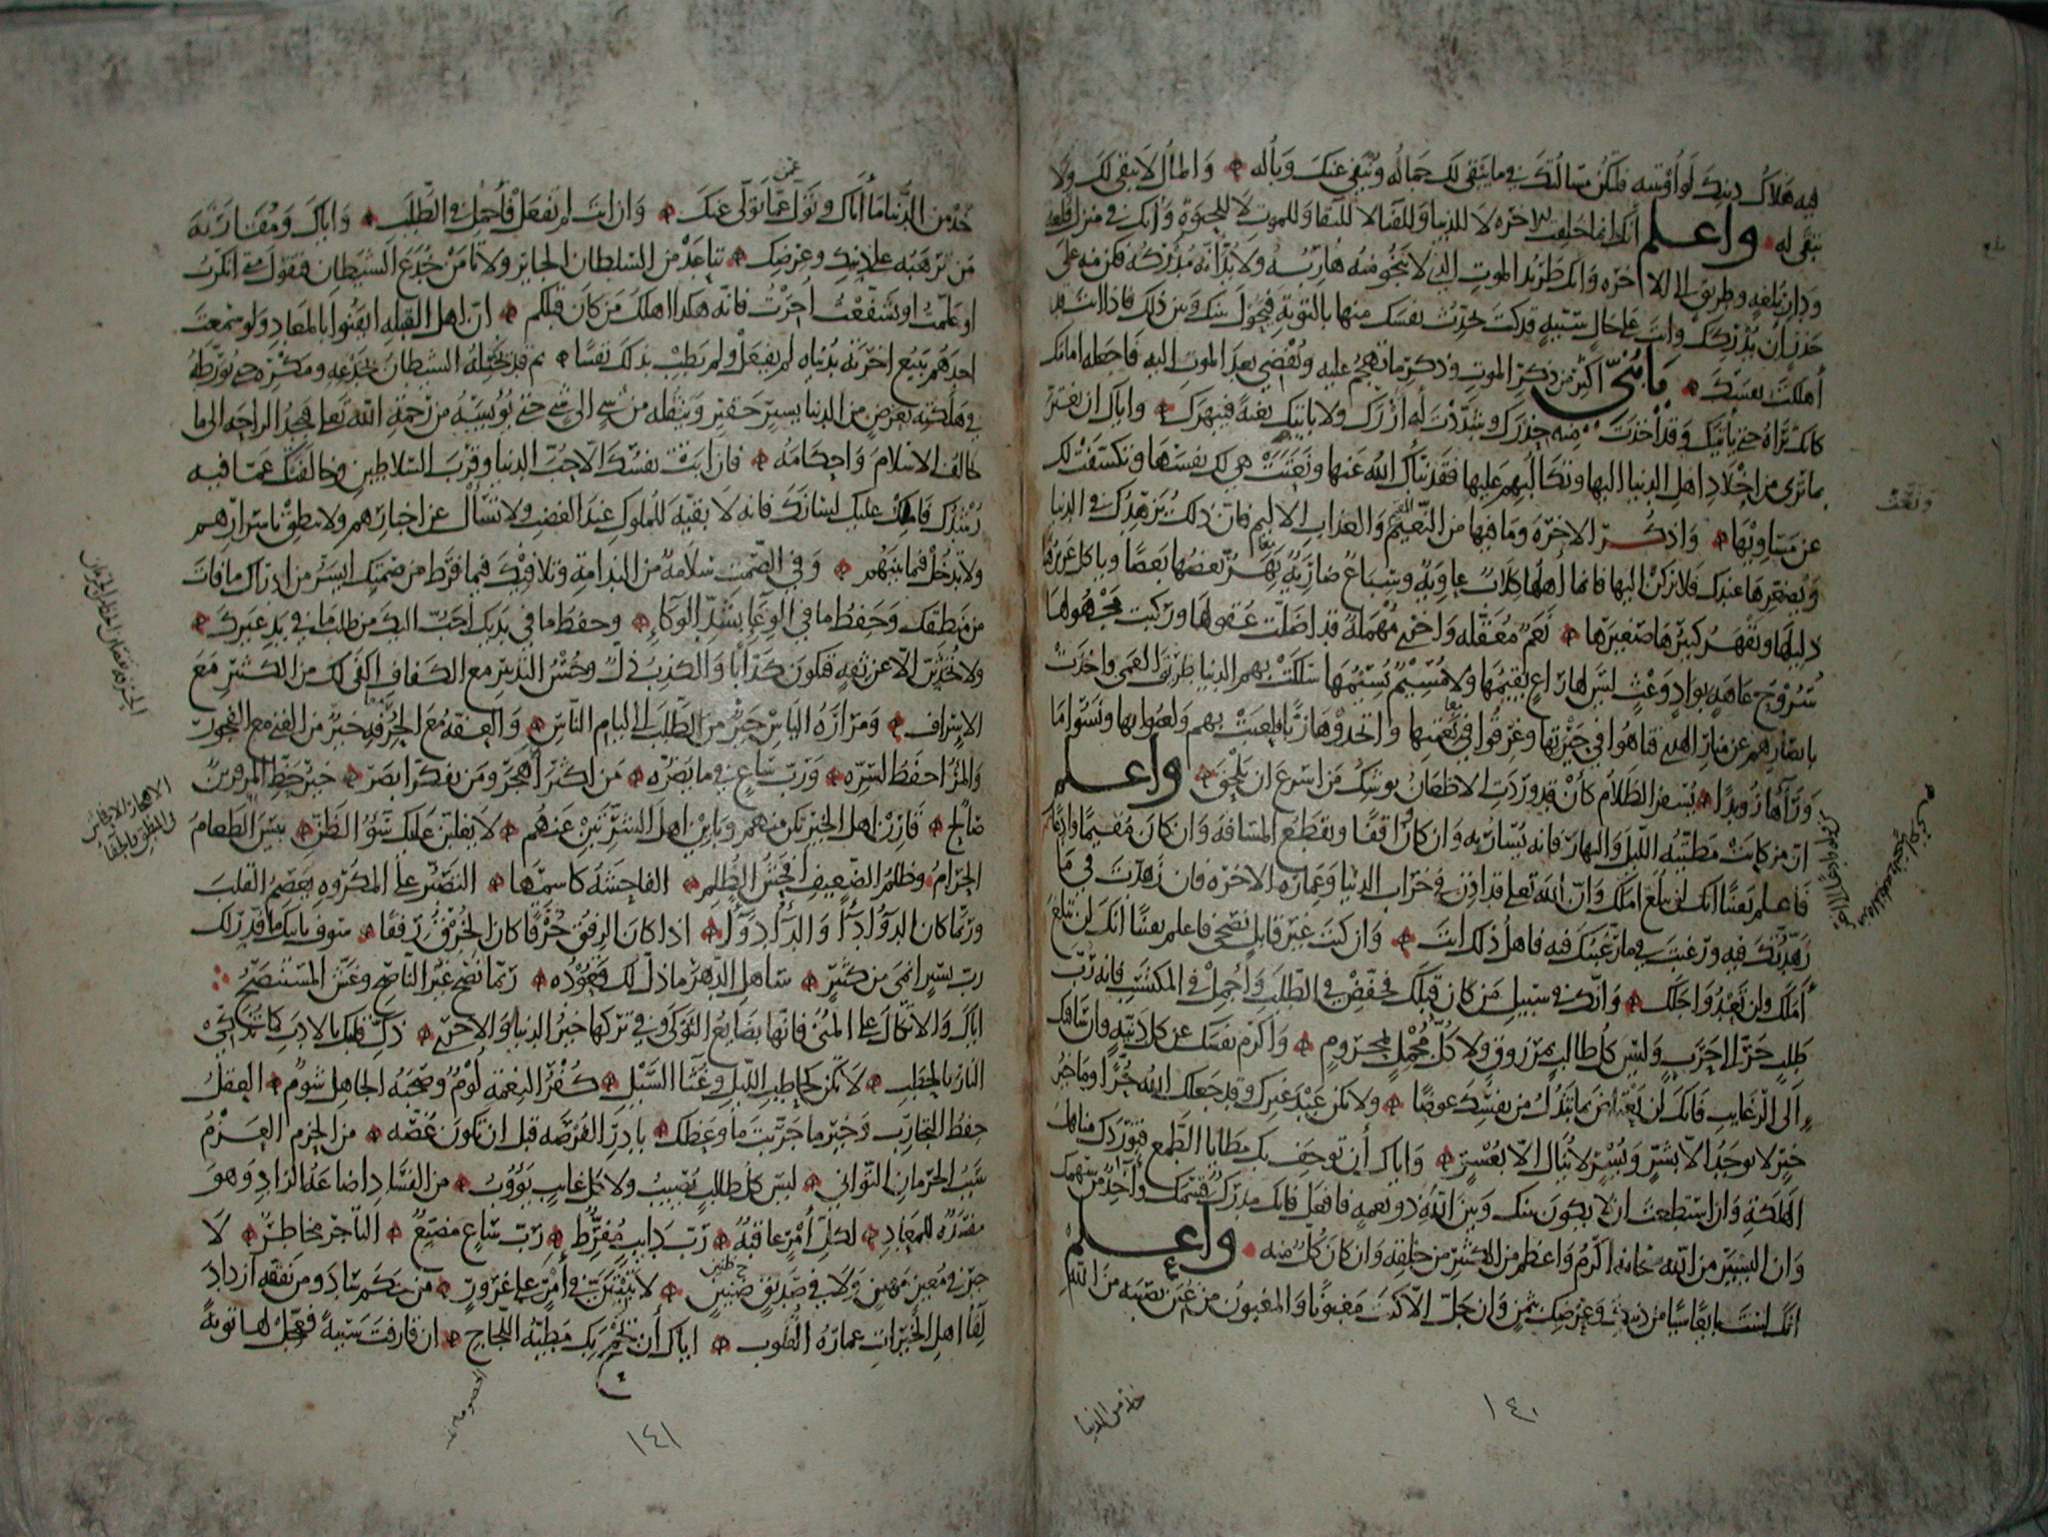 فيه هلاك دينك لو أوتيته فلتكن مسألتك في ما يبقى لك جماله وينفى عنك وباله والمال لا يبقى لك ولا
تبقى له واعلم أنك إنما خلقت للآخرة لا للدنيا وللفنا لا للبقا وللموت لا للحيوة وأنك في منزل قلعة
ودار بلغة وطريق إلى الآخرة وأنك طريد الموت الذي لا ينجو منه هاربه ولا بد أنه مدركه فكن منه على
حذر أن يدركك وأنت على حال سيئة قد كنت تحدث نفسك منها بالتوبة فيحول بينك وبين ذلك فاذا أنت قد
أهلكت نفسك يا بني أكثر من ذكر الموت وذكر ما تهجم عليه وتفضي بعد الموت إليه فاجعله أمامك
كأنك تراه حتى يأتيك وقد أخذت منه حذرك وشددت له أزرك ولا يأتيك بغتة فيبهرك وإياك أن تغتر
بما ترى من إخلاد أهل الدنيا إليها وتكالبهم عليها فقد نبأك الله عنها ونعتت هي لك نفسها وتكشفت لك
عن مساويها واذكر الآخرة وما فيها من النعيم والعذاب الأليم فان ذلك يزهدك في الدنيا
ويصغرها عندك فلا تركن إليها فانما أهلها كلاب عاوية وسباع ضارية يهر بعضها بعضا ويأكل عزيزها
ذليلها ويقهر كبيرها صغيرها نعم معقلة وأخرى مهملة قد أضلت عقولها وركبت مجهولها
سروح عاهة بواد وعث ليس لها راع يقيمها ولا مسيم يسيمها سلكت بهم الدنيا طريق العمى وأخذت
بأبصارهم عن منار الهدى فتاهوا في حيرتها وغرقوا في نعمتها واتخذوها ربا فلعبت بهم ولعبوا بها ونسوا ما
وراها رويدا يسفر الظلام كأن قد وردت الأظعان يوشك من أسرع أن يلحق واعلم
أن من كانت مطيته الليل والنهار فانه يسار به وإن كان واقفا ويقطع المسافة وإن كان مقيما وادعا
فاعلم يقينا أنك لن تبلغ أملك وأن الله تعلى قد أذن في خراب الدنيا وعمارة الآخرة فان زهدت في ما
زهدتك فيه ورغبت في ما رغبتك فيه فأهل ذلك أنت وإن كنت غير قابل نصحي فاعلم يقينا أنك لن تبلغ
أملك ولن تعدو أجلك وأنك في سبيل من كان قبلك فخفض في الطلب وأجمل في المكتسب فانه رب
طلب جر إلى حرب وليس كل طالب بمرزوق ولا كل مجمل بمحروم وأكرم نفسك عن كل دنية وإن ساقتك
إلى الرغايب فانك لن تعتاض بما تبذل من نفسك عوضا ولا تكن عبد غيرك وقد جعلك الله حرا وما خير
خير لا يوجد إلا بشر ويسر لا ينال إلا بعسر وإياك أن توجف بك مطايا الطمع فتوردك مناهل
الهلكة وإن استطعت أن لا يكون بينك وبين الله ذو نعمة فافعل فانك مدرك قسمك وآخذ سهمك
وإن اليسير من الله سبحانه أكرم وأعظم من الكثير من خلقه وإن كان كل منه واعلم
خذ من الدنيا
١٤٠
خذ من الدنيا ما أتاك وتول عما تولى عنك وإن أنت لم تفعل فأجمل في الطلب وإياك ومقاربة
من ترهبه على دينك وعرضك تباعد من السلطان الجاير ولا تأمن خدع الشيطان فتقول متى أنكرت
أو علمت أو تشفعت أجرت فانه هكذا أهلك من كان قبلكم إن أهل القبلة أيقنوا بالمعاد ولو سمعت
أحدهم يبيع آخرته بدنياه لم يفعل ولم يطب بذلك نفسا ثم قد يختله الشيطان بخدعه ومكره حتى يورطه
في هلكته بعرض من الدنيا يسير حقير وينقله من شي إلى شي حتى يويسه من رحمة الله تعلى فيجد الراحة إلى ما
خالف الإسلام وأحكامه فان أبت نفسك إلا حب الدنيا وقرب السلاطين وخالفتك عما فيه
رشدك فاملك عليك لسانك فانه لا بقية للملوك عند الغضب ولا تسأل عن أخبارهم ولا تنطق بأسرارهم
ولا تدخل فيما بينهم وفي الصمت سلامة من الندامة وتلافيك فيما فرط من صمتك أيسر من إدراك ما فات
من منطقك وحفظ ما في الوعا بشد الوكاء وحفظ ما في يديك أحب إليك من طلب ما في يد غيرك
ولا تحدثن إلا عن ثقة فتكون كذابا والكذب ذل وحسن التدبير مع الكفاف أكفى لك من الكثير مع
الإسراف ومرارة اليأس خير من الطلب إلى ليام الناس والعفة مع الحرفة خير من الغنى مع الفجور
والمرء أحفظ لسره ورب ساع في ما يضره من أكثر أهجر ومن تفكر أبصر خير حظ المرء قرين
صالح قارن أهل الخير تكن منهم وباين أهل الشر تبن عنهم لا يغلبن عليك سوء الظن بيس الطعام
الحرام وظلم الضعيف أفحش الظلم الفاحشة كاسمها التصبر على المكروه يعصم القلب
وربما كان الدواء داء والداء دواء إذا كان الرفق خرقا كان الخرق رفقا سوف يأتيك ما قدر لك
رب يسير أنمى من كثير ساهل الدهر ما ذل لك قعوده ربما نصح غير الناصح وغش المستنصح
إياك والاتكال على المنى فانها بضايع النوكى وفي تركها خير الدنيا والأخرى ذك قلبك بالأدب كما تذكى
النار بالحطب لا تكن كحاطب الليل وغثا السيل كفر النعمة لؤم وصحبة الجاهل شوم العقل
حفظ التجارب وخير ما جربت ما وعظك بادر الفرصة قبل أن تكون غصة من الحزم العزم
سبب الحرمان التواني ليس كل طالب يصيب ولا كل غايب يؤوب من الفساد إضاعة الزاد وهو
مفسدة للمعاد لكل أمر عاقبة رب دايب مفرط رب ساع مضيع التاجر مخاطر لا
خير في معين مهين ولا في صديق ضنين لا تبيتن من أمر على غرور من حكم ساد ومن تفقه ازداد
لقا أهل الخيرات عمارة القلوب إياك أن تجمح بك مطية اللجاج إن قارفت سيئة فعجل لها توبة
١٤١